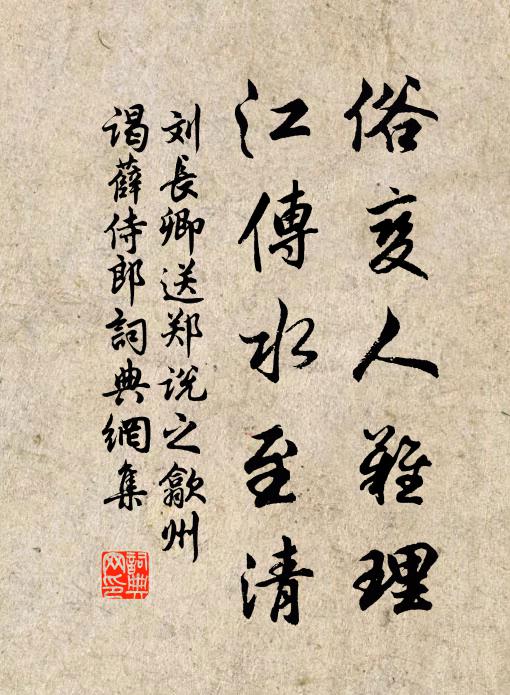 俗变人难理
江傳水至清
刘長卿送郑说之歙州
谒薛侍郎詞典網集
詞典
网印